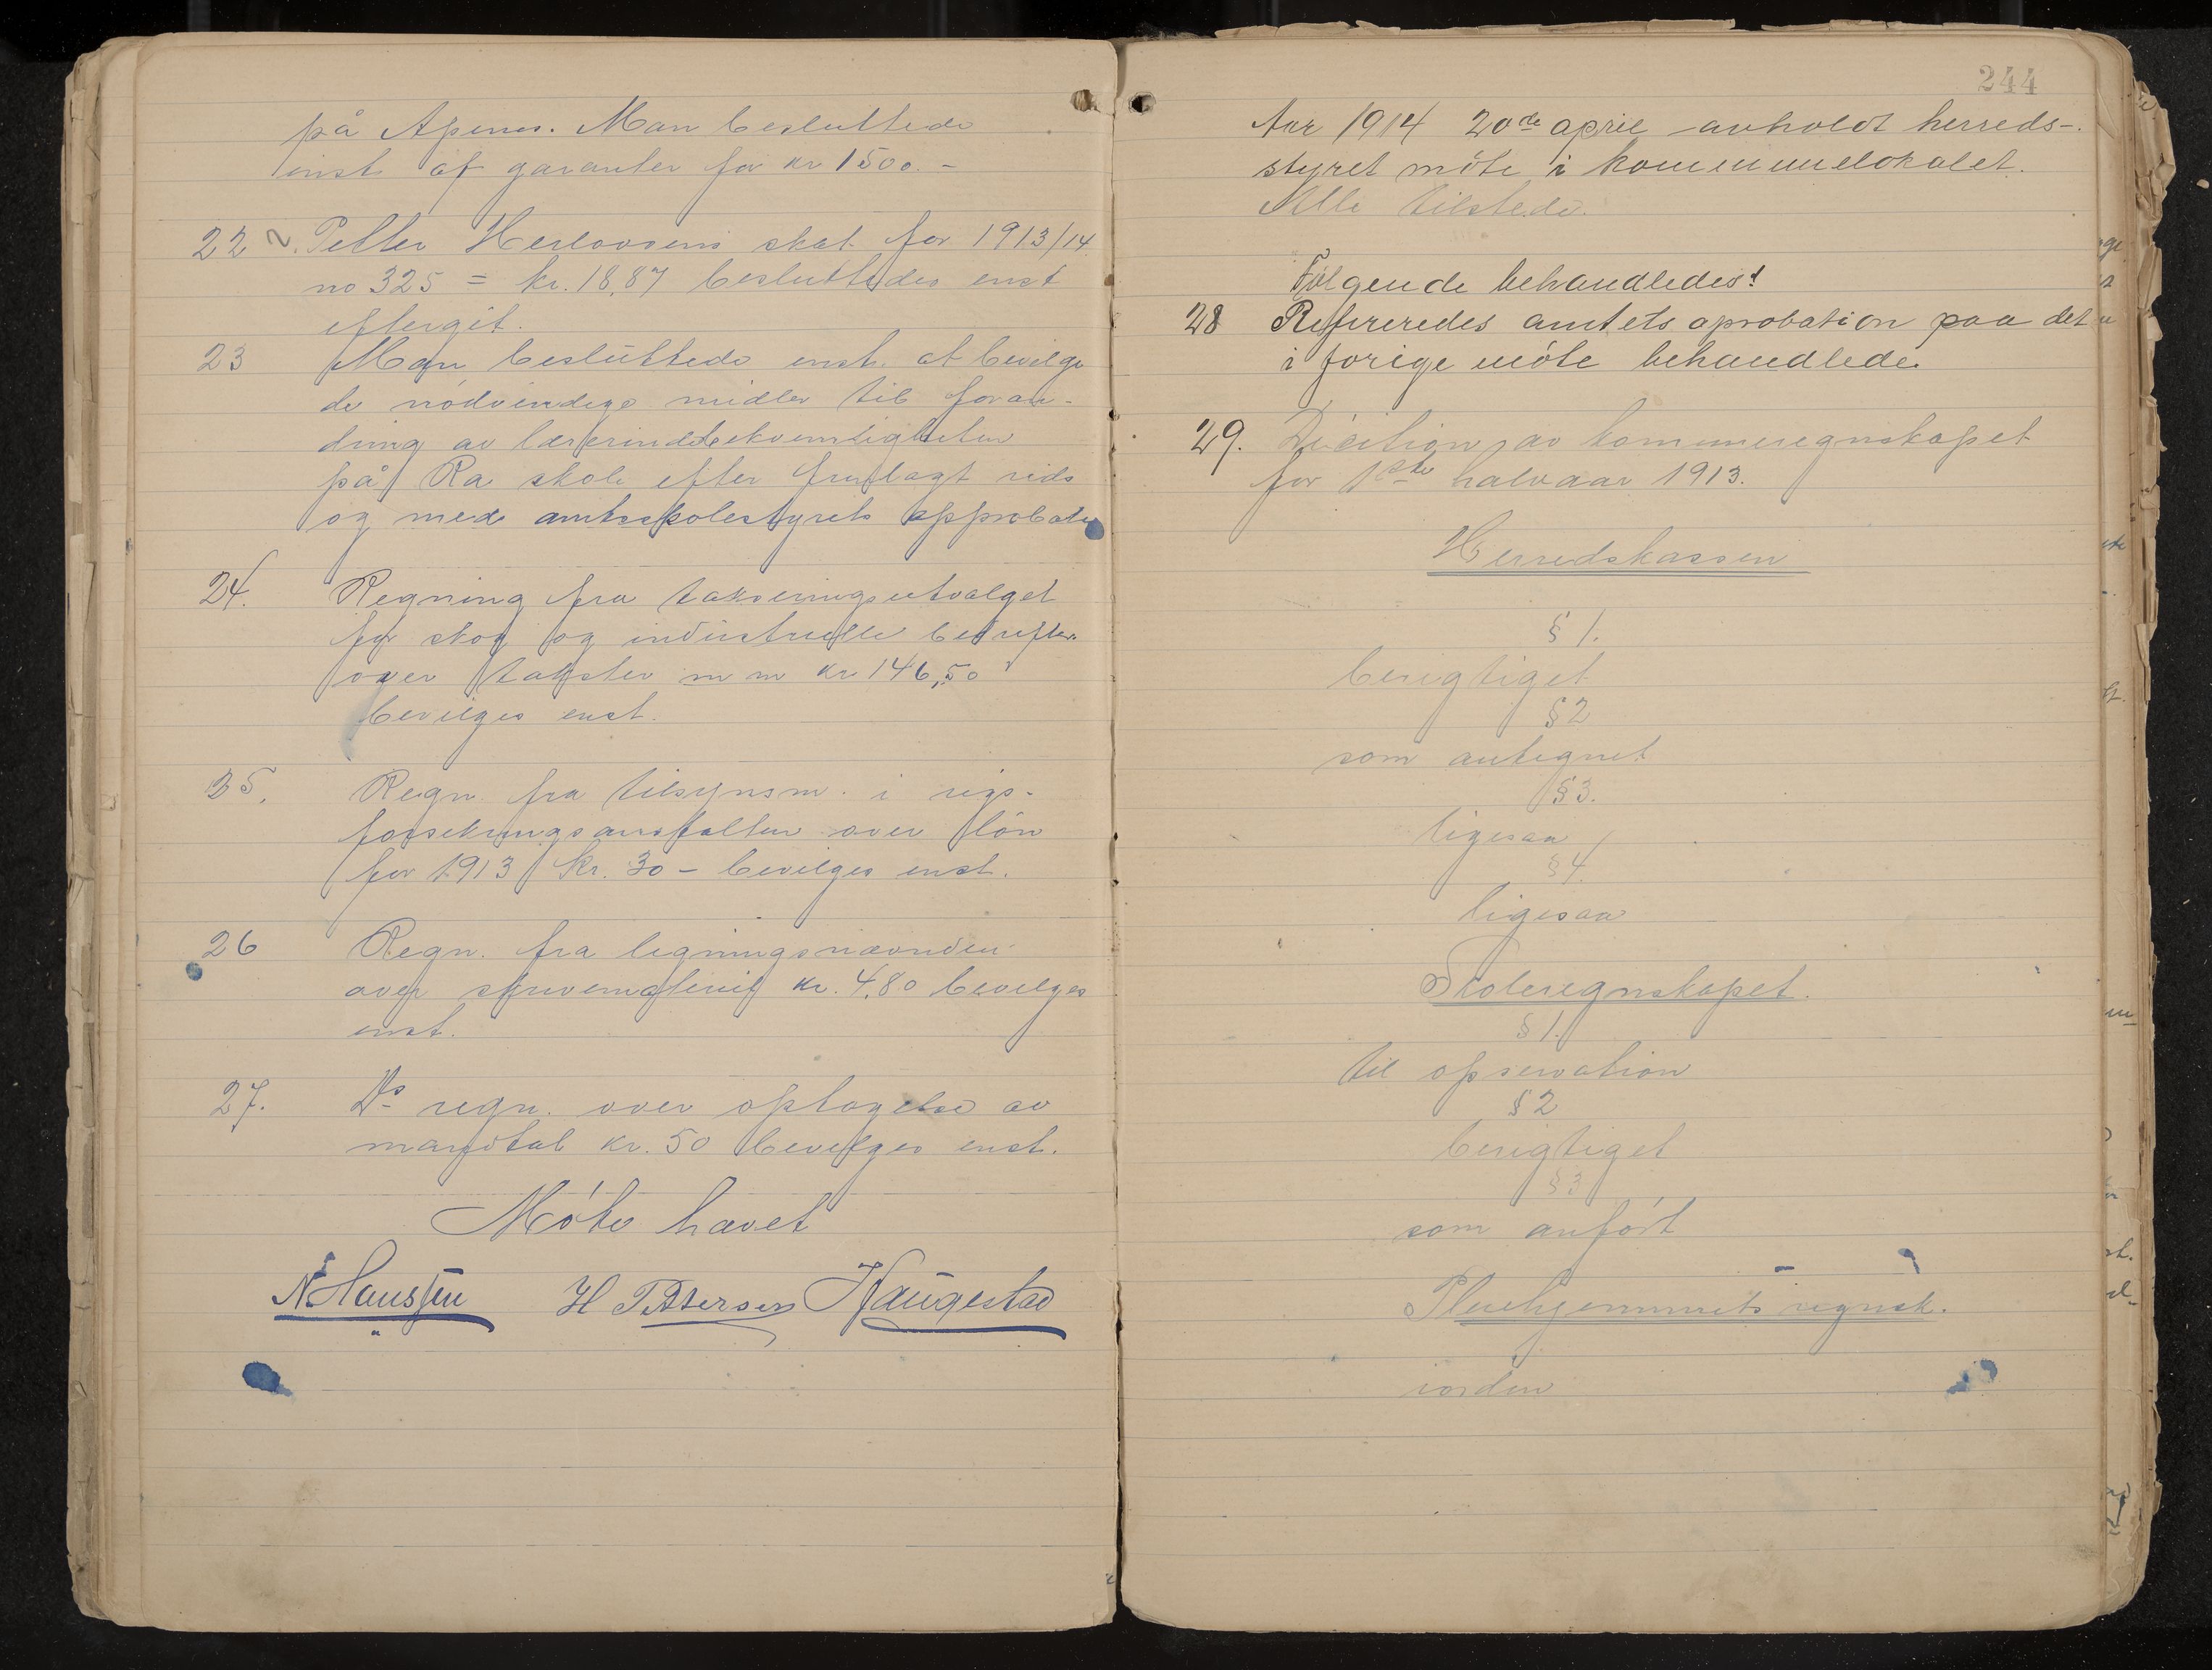 på Apenes. Man besluttede
enst at garanter for kr 1500.-
22 Petter Herlovsens skat for 1913/14
no 325 = kr. 18,87 besluttedes enst
eftergit.
23 Man besluttede enst. at bevilge
de nödvendige midler til foran-
dring av lærerindebekvemligheten
på Ra skole efter fremlagt
og med amtsskolestyrets approbati
24. Regning fra takseringsutvalget
for skog og industrielle bedrifter
over takster m m kr 146,50
bevilges enst.
25. Regn. fra tilsynsm. i rigs-
forsekringsanstalten over lön
for 1913 kr. 30 - bevilges enst.
26 Regn. fra ligningsnævnden
over skrivematerial kr. 4,80 bevilges
enst.
27. Ds regn. over optagelse av
mandtal kr. 50 bevilges enst.
Möte hævet
N. Hanssen H Pettersen Haugestad
244
Aar 1914 20de april avholdt herreds-
styret möte i kommunelokalet.
Alle tilstede.
Følgende behandledes!
28 Refereredes amtets aprobation paa det
i forige möte behandlede.
29. Dicition av komuneregnskapet
for 1ste halvaar 1913.
Herredskassen
§ 1.
berigtiget
§ 2
som antegnet
§ 3.
ligesaa
§ 4
ligesaa
Skoleregnskapet.
§ 1.
til opservation
§ 2
berigtiget
§ 3
som anfört
Pleiehjemmets regnsk.
iorden